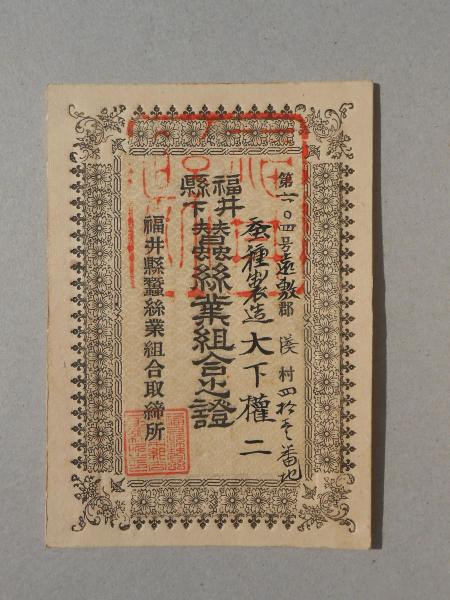 第六〇四号遠敷郡 村四拾壱番地
蚕種製造大下權二
福井縣下蠶絲業組合之證
福井縣蠶絲業組合取締所